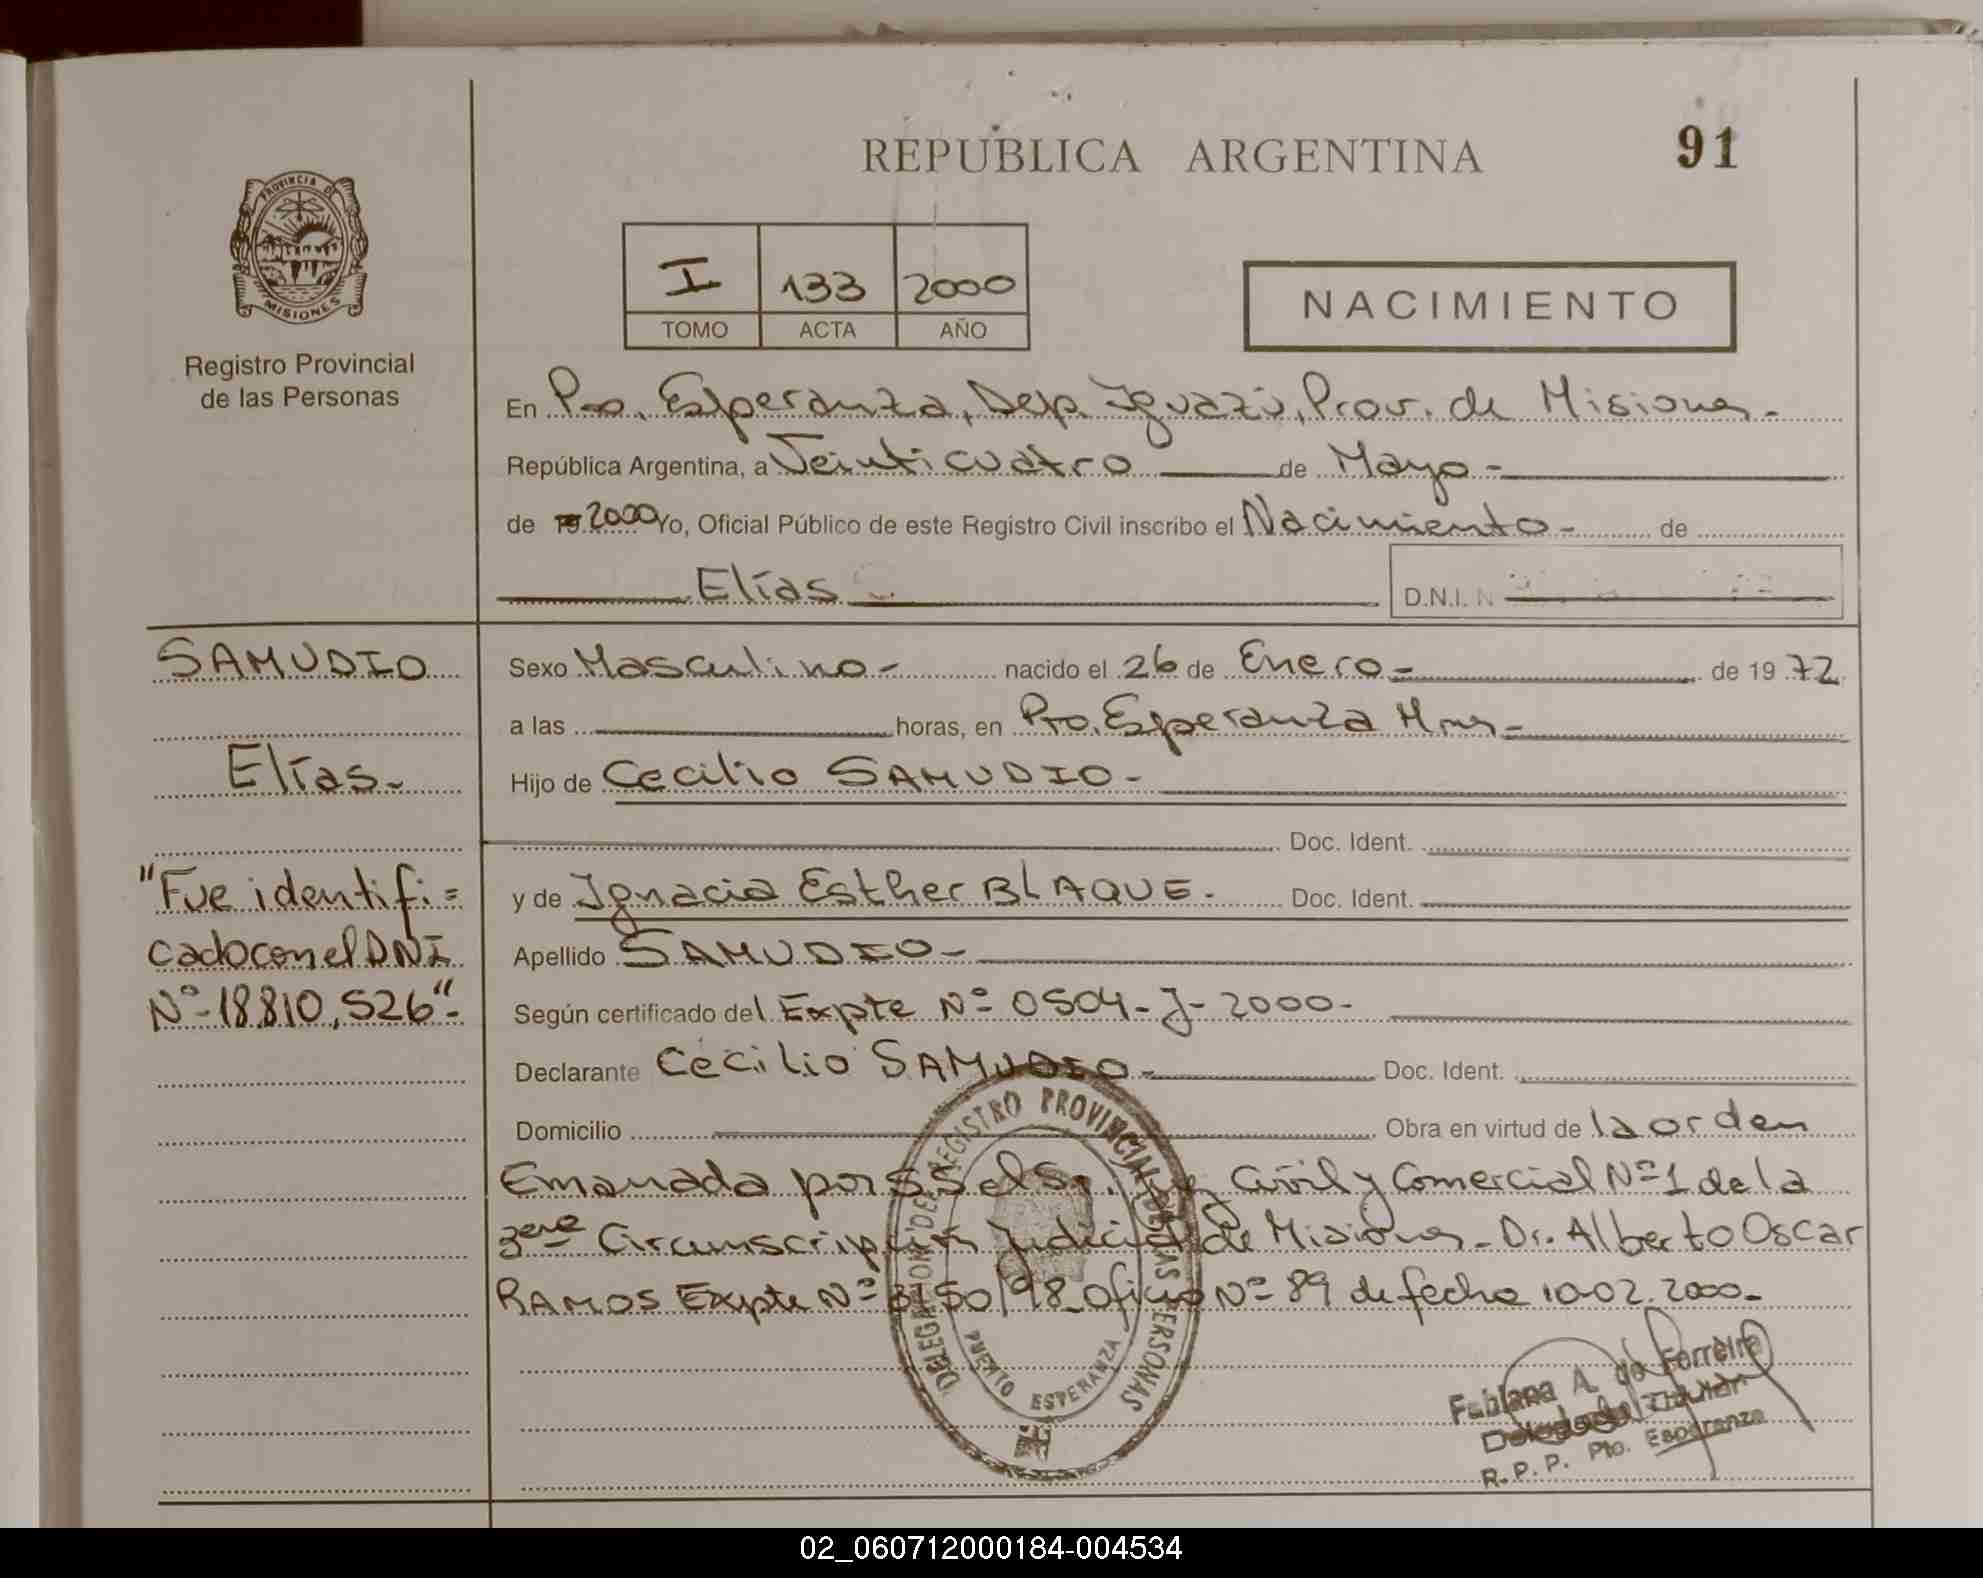 REPUBLICA ARGENTINA
91
PROVINCIA DE
MISIONES
Registro Provincial
de las Personas
I 133 2000
TOMO ACTA AÑO
NACIMIENTO
En Pto. Esperanza, Dep. Iguazú, Prov. de Misiones-
República Argentina, a Veinticuatro de Mayo-
de 19 2000 Yo, Oficial Público de este Registro Civil inscribo el Nacimiento- de
Elías
D.N.I. N
SAMUDIO
Elías-
"Fue identifi=
cado con el DNI
Nº-18810,526"-
Sexo Masculino- nacido el 26 de Enero- de 1972
a las horas, en Pto. Esperanza Mnes-
Hijo de Cecilio SAMUDIO-
Doc. Ident.
y de Ignacia Esther BLAQUE- Doc. Ident.
Apellido SAMUDIO-
Según certificado del Expte Nº 0504-J-2000-
Declarante Cecilio SAMUDIO- Doc. Ident.
Domicilio Obra en virtud de la orden
Emanada por SS el Sr. Juez Civil y Comercial Nº1 de la
3era Circunscripción Judicial de Misiones- Dr. Alberto Oscar
RAMOS Expte Nº 3150/98 Oficio Nº 89 de fecha 10-02.2000-
DELEGACION DEL REGISTRO PROVINCIAL DE LAS PERSONAS
PUERTO ESPERANZA
Fabiana A. de Ferreira
Delegada Titular
R.P.P. Pto. Esperanza
02_060712000184-004534